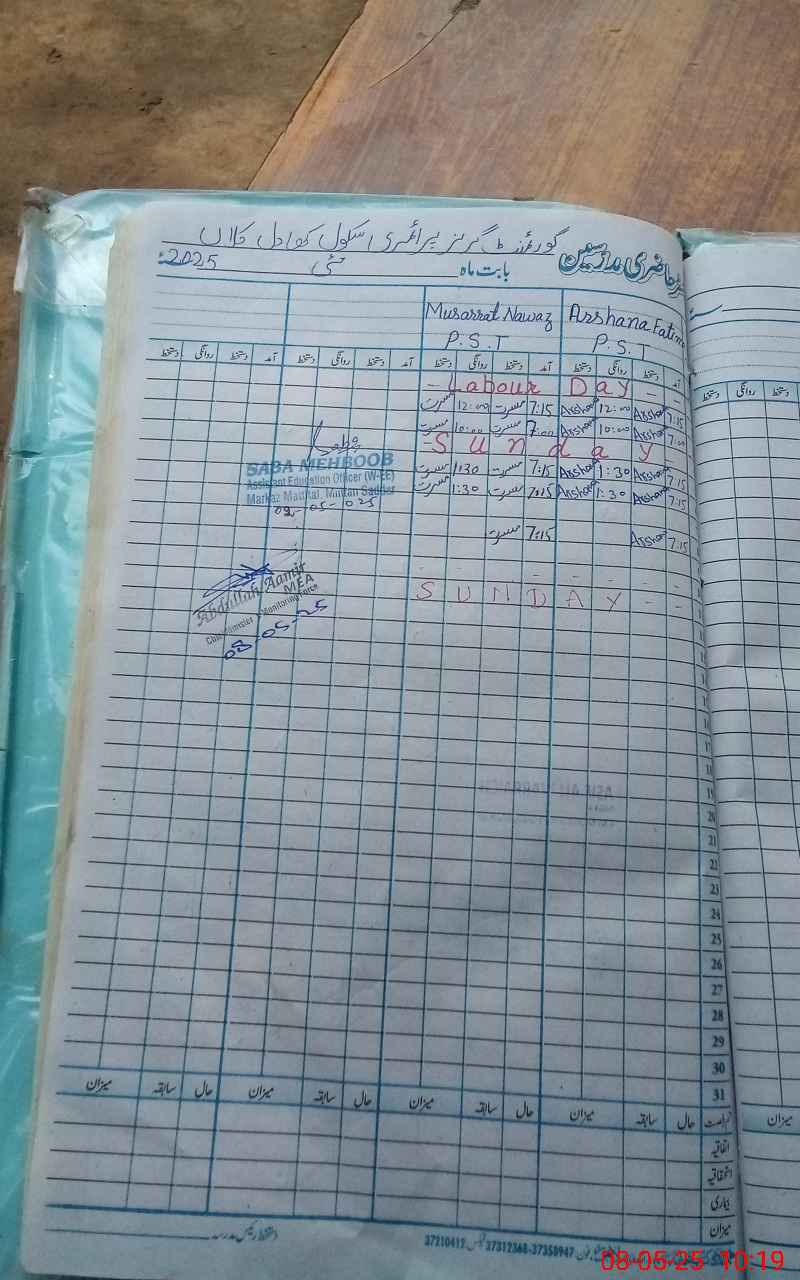 حاضری مدرسین گورنمنٹ گرلز پرائمری سکول کلاں
بابت ماہ مئی 2025ء
Arshana Fatima Musarrat Nawaz
P.S.T P.S.T
آمد دستخط روانگی دستخط آمد دستخط روانگی دستخط آمد دستخط روانگی دستخط آمد دستخط روانگی دستخط
دستخط روانگی دستخط
— Labour Day — —
7:15 Arsha 12:00 Arsha 7:15 مسرت 12:00 مسرت
7:00 Arsha 10:00 Arsha 7:00 مسرت 10:00 مسرت
Sunday
7:15 Arsha 1:30 Arsha 7:15 مسرت 1:30 مسرت
7:15 Arsha 1:30 Arsha 7:15 مسرت 1:30 مسرت
7:15 Arsha 7:15 مسرت
SUNDAY — —
SABA MEHBOOB
Assistant Education Officer (W-EE)
Markaz
Abdullah Aamir
MEA
Monitoring Force
08-05-25
17
18
19
20
21
22
23
24
25
26
27
28
29
30
31
حال سابقہ میزان حال سابقہ میزان حال سابقہ میزان حال سابقہ میزان
میزان
اتفاقیہ
بیماری
میزان
دستخط رئیس مدرسہ
37312368-37358947 فیکس 37210412
08-05-25 10:19